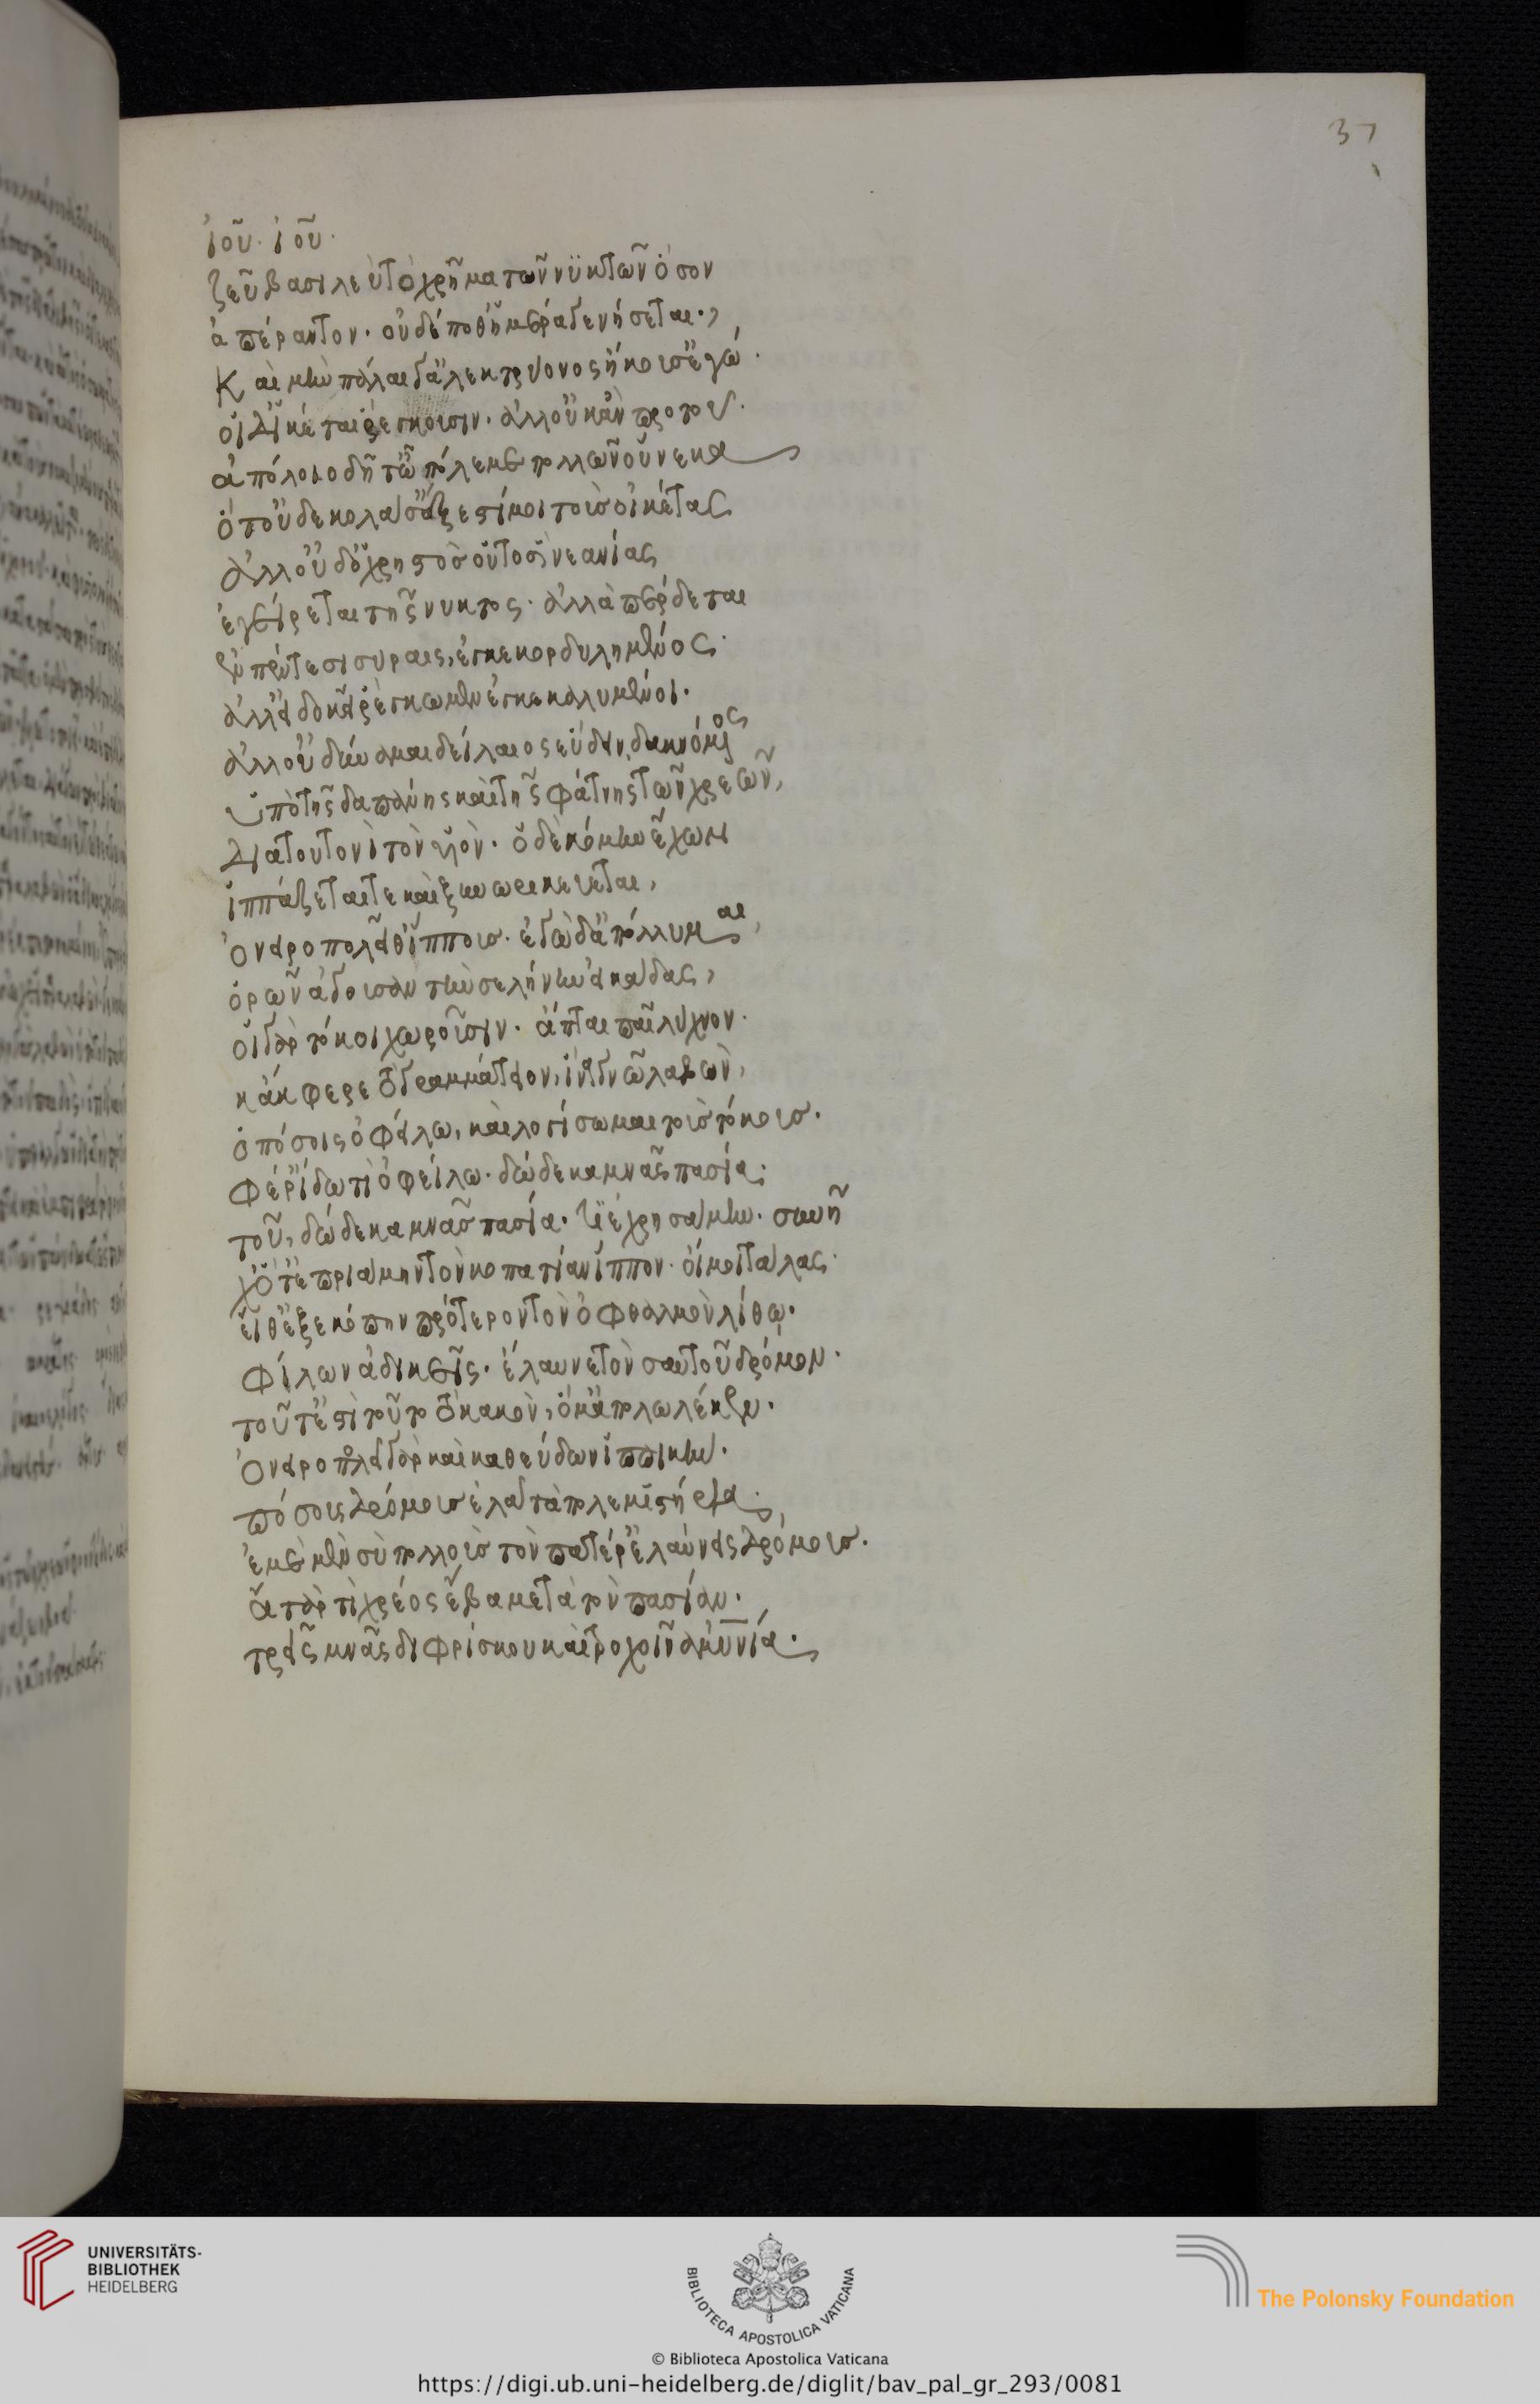 37
ἰοῦ· ἰοῦ·
ζεῦ βασιλεῦ τὸ χρῆμα τῶν νϋκτῶν ὅσον
ἀπέραντον· οὐδέποθ' ἡμέρα γενήσεται·,
Καὶ μὴν πάλαι γ' ἀλεκτρυόνος ἤκουσ' ἐγώ·
οἱ δ' οἰκέται ῥέγκουσιν· ἀλλ' οὐκ ἂν προτοῦ·
ἀπόλοιο δῆτ' ὦ πόλεμε πολλῶν οὕνεκα
ὅτ' οὐδὲ κολάσ' ἔξεστί μοι τοὺς οἰκέτας
ἀλλ' οὐδ' ὁ χρηστὸς οὗτοσὶ νεανίας
ἐγείρεται τῆς νυκτος· ἀλλὰ πέρδεται
ἐν πέντε σισυραις, ἐγκεκορδυλημένος·
ἀλλ' εἰ δοκεῖ ῥέγκωμεν ἐγκεκαλυμμένοι·
ἀλλ' οὐ δύναμαι δείλαιος εὕδειν, δακνόμενος
ὑπὸ τῆς δαπάνης καὶ τῆς φάτνης τῶν χρεῶν,
διὰ τουτονὶ τὸν υἱόν· ὁ δὲ κόμην ἔχων
ἱππάζεταί τε καὶ ξυνωρικεύεται,
ὀνειροπολεῖ θ' ἵππους· ἐγὼ δ' ἀπόλλυμαι,
ὁρῶν ἄγουσαν τὴν σελήνην εἰκάδας,
οἱ γὰρ τόκοι χωροῦσιν· ἅπται παῖ λύχνον·
κἄκφερε τὸ γραμματεῖον, ἵν' ἀναγνῶ λαβὼν,
ὁπόσοις ὀφείλω, καὶ λογίσωμαι τοὺς τόκους·
φέρ' ἴδω τί ὀφείλω· δώδεκα μνᾶς πασία·
τοῦ, δώδεκα μνᾶς πασία· τί ἐχρησάμην·
χὤτ' ἐπριάμην τὸν κοππατίαν ἵππον· οἴμοι τάλας·
εἴθ' ἐξεκόπην πρότερον τὸν ὀφθαλμὸν λίθῳ·
φίλων ἀδικεῖς· ἔλαυνε τὸν σαυτοῦ δρόμον·
τοῦτ' ἔστι τοῦτο τὸ κακὸν, ὅ μ' ἀπολώλεκεν·
ὀνειροπολεῖ γὰρ καὶ καθεύδων ἱππικήν·
πόσους δρόμους ἐλᾷ τὰ πολεμιστήρια·,
ἐμὲ μὲν σὺ πολλοὺς τὸν πατέρ' ἐλαύνεις δρόμους·
ἀτὰρ τί χρέος ἔβα με μετὰ τὸν πασίαν·
τρεῖς μνᾶς διφρίσκου καὶ τροχοῖν ἀμυνίᾳ·
UNIVERSITÄTS-
BIBLIOTHEK
HEIDELBERG
BIBLIOTECA APOSTOLICA VATICANA
The Polonsky Foundation
© Biblioteca Apostolica Vaticana
https://digi.ub.uni-heidelberg.de/diglit/bav_pal_gr_293/0081